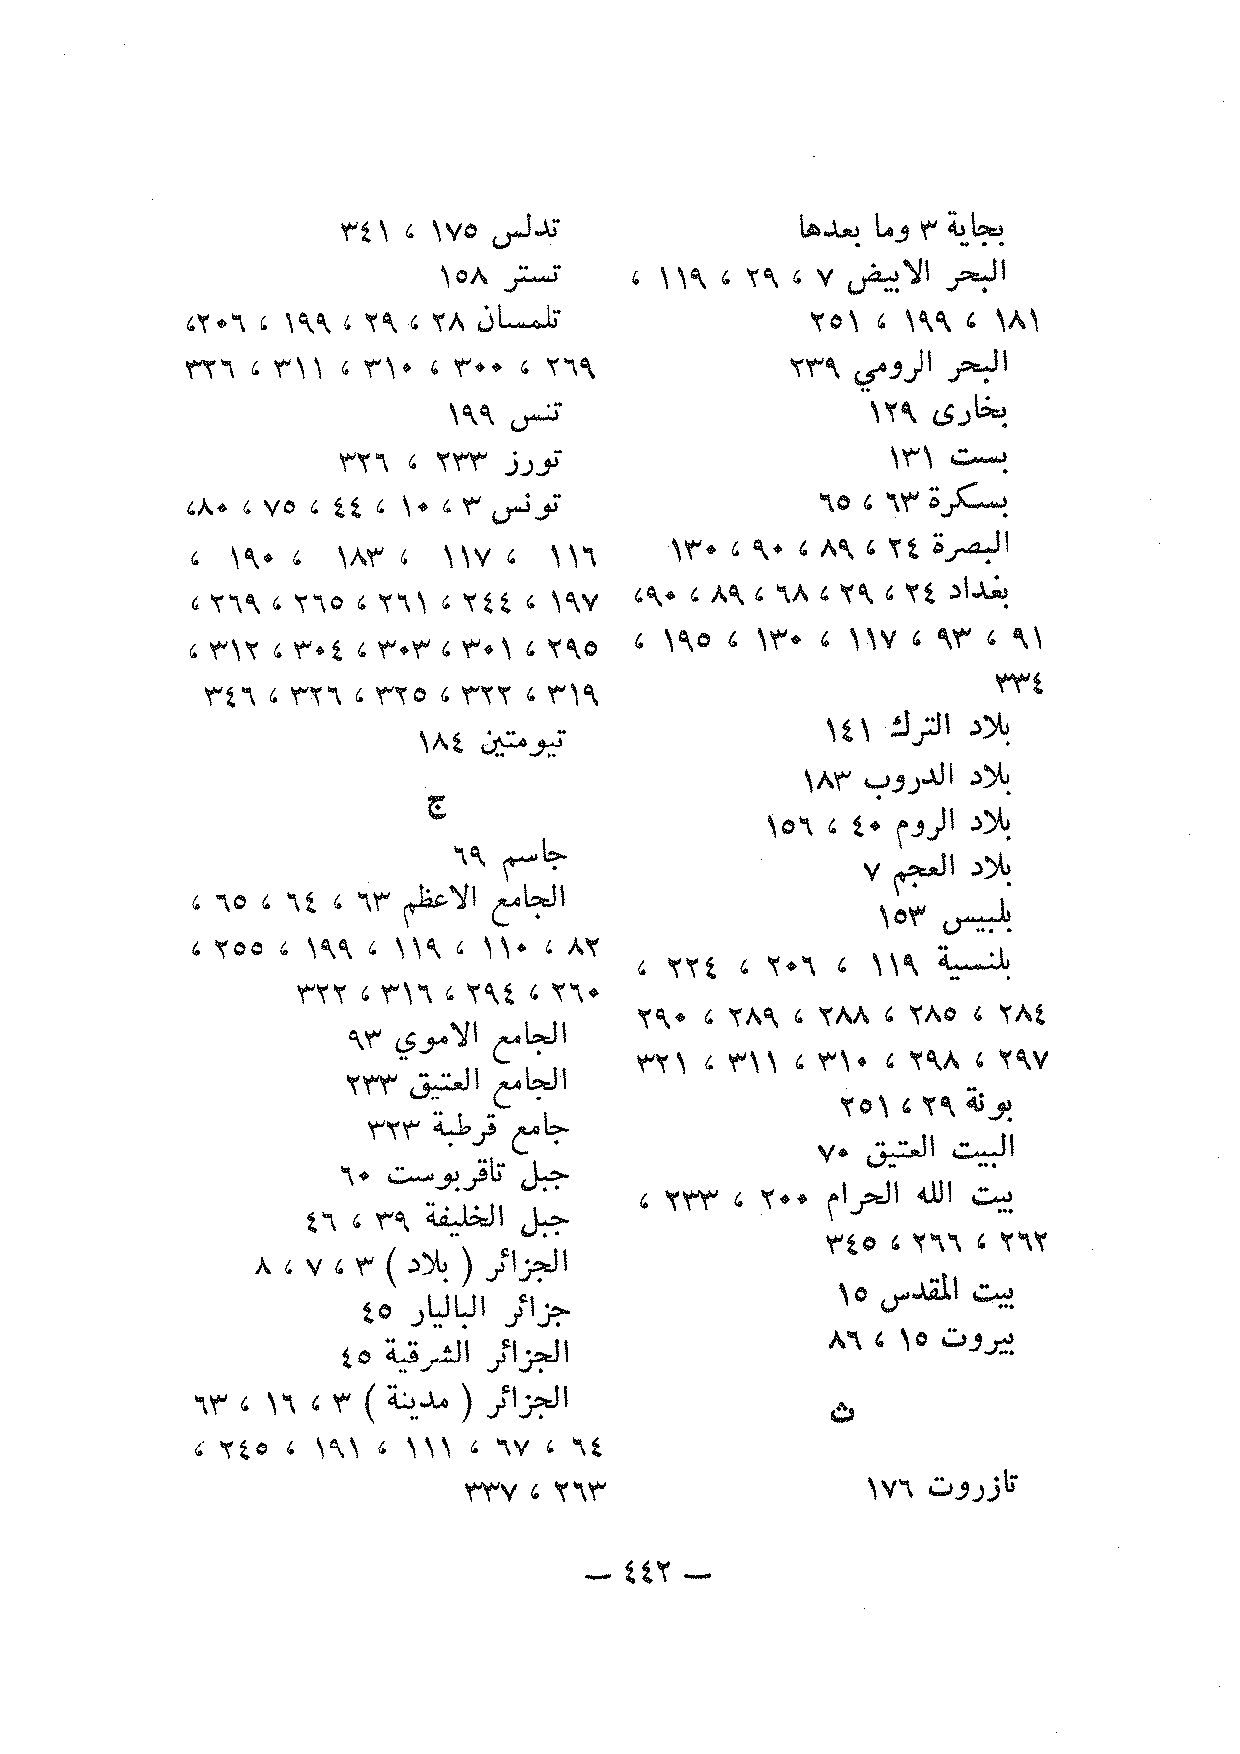 بجاية ٣ وما بعدها
البحر الابيض ٧ ، ٢٩ ، ١١٩ ،
١٨١ ، ١٩٩ ، ٢٥١
البحر الرومي ٢٣٩
بخارى ١٢٩
بست ١٣١
بسكرة ٦٣ ، ٦٥
البصرة ٢٤ ، ٨٩ ، ٩٠ ، ١٣٠
بغداد ٢٤ ، ٢٩ ، ٦٨ ، ٨٩ ، ٩٠،
٩١ ، ٩٣ ، ١١٧ ، ١٣٠ ، ١٩٥ ،
٣٣٤
بلاد الترك ١٤١
بلاد الدروب ١٨٣
بلاد الروم ٤٠ ، ١٥٦
بلاد العجم ٧
بلبيس ١٥٣
بلنسية ١١٩ ، ٢٠٦ ، ٢٢٤ ،
٢٨٤ ، ٢٨٥ ، ٢٨٨ ، ٢٨٩ ، ٢٩٠
٢٩٧ ، ٢٩٨ ، ٣١٠ ، ٣١١ ، ٣٢١
بونة ٢٩ ، ٢٥١
البيت العتيق ٧٠
بيت الله الحرام ٢٠٠ ، ٢٣٣ ،
٢٦٢ ، ٢٦٦ ، ٣٤٥
بيت المقدس ١٥
بيروت ١٥ ، ٨٦
ث
تازروت ١٧٦
تدلس ١٧٥ ، ٣٤١
تستر ١٥٨
تلمسان ٢٨ ، ٢٩ ، ١٩٩ ، ٢٠٦،
٢٦٩ ، ٣٠٠ ، ٣١٠ ، ٣١١ ، ٣٢٦
تنس ١٩٩
تورز ٢٣٣ ، ٣٢٦
تونس ٣ ، ١٠ ، ٤٤ ، ٧٥ ، ٨٠،
١١٦ ، ١١٧ ، ١٨٣ ، ١٩٠ ،
١٩٧ ، ٢٤٤ ، ٢٦١ ، ٢٦٥ ، ٢٦٩ ،
٢٩٥ ، ٣٠١ ، ٣٠٣ ، ٣٠٤ ، ٣١٢ ،
٣١٩ ، ٣٢٢ ، ٣٢٥ ، ٣٢٦ ، ٣٤٦
تيومتين ١٨٤
ج
جاسم ٦٩
الجامع الاعظم ٦٣ ، ٦٤ ، ٦٥ ،
٨٢ ، ١١٠ ، ١١٩ ، ١٩٩ ، ٢٥٥ ،
٢٦٠ ، ٢٩٤ ، ٣١٦ ، ٣٢٢
الجامع الاموي ٩٣
الجامع العتيق ٢٣٣
جامع قرطبة ٣٢٣
جبل تاقربوست ٦٠
جبل الخليفة ٣٩ ، ٤٦
الجزائر ( بلاد ) ٣ ، ٧ ، ٨
جزائر الباليار ٤٥
الجزائر الشرقية ٤٥
الجزائر ( مدينة ) ٣ ، ١٦ ، ٦٣
٦٤ ، ٦٧ ، ١١١ ، ١٩١ ، ٢٤٥ ،
٢٦٣ ، ٣٣٧
— ٤٤٢ —